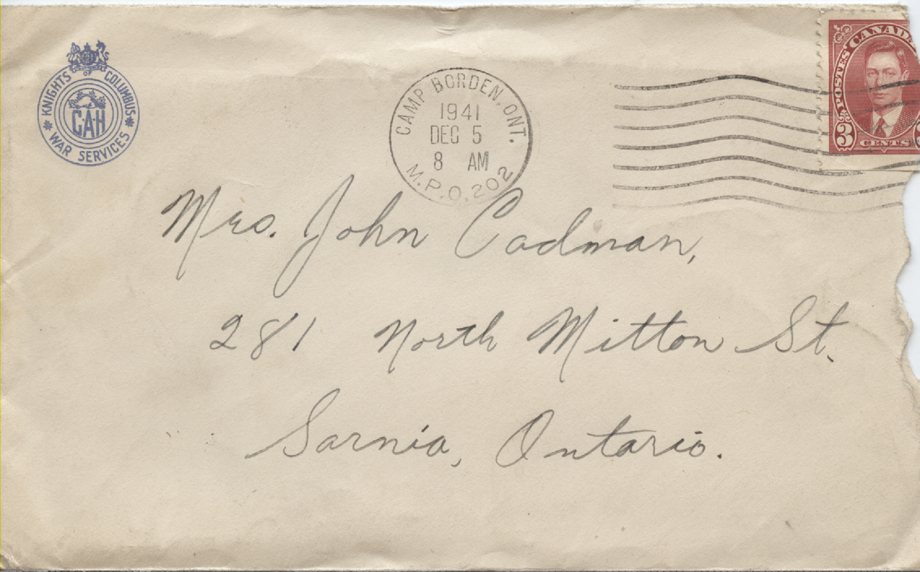 KNIGHTS OF COLUMBUS
CAH
WAR SERVICES
CAMP BORDEN, ONT.
1941
DEC 5
8 AM
M.P.O. 202
POSTES CANADA
3
CENTS
Mrs. John Cadman,
281 North Mitton St.
Sarnia, Ontario.